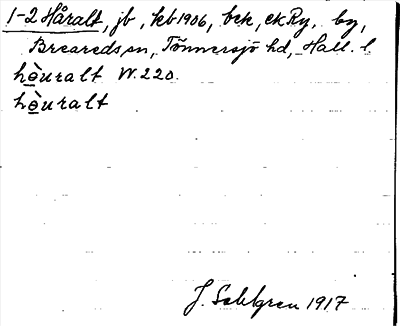 1-2 Håralt, jb, kb 1906, bek, ekRy. by,
Breareds sn, Tönnersjö hd, Hall. l
hèuralt W. 220.
hèuralt
J. Sahlgren 1917